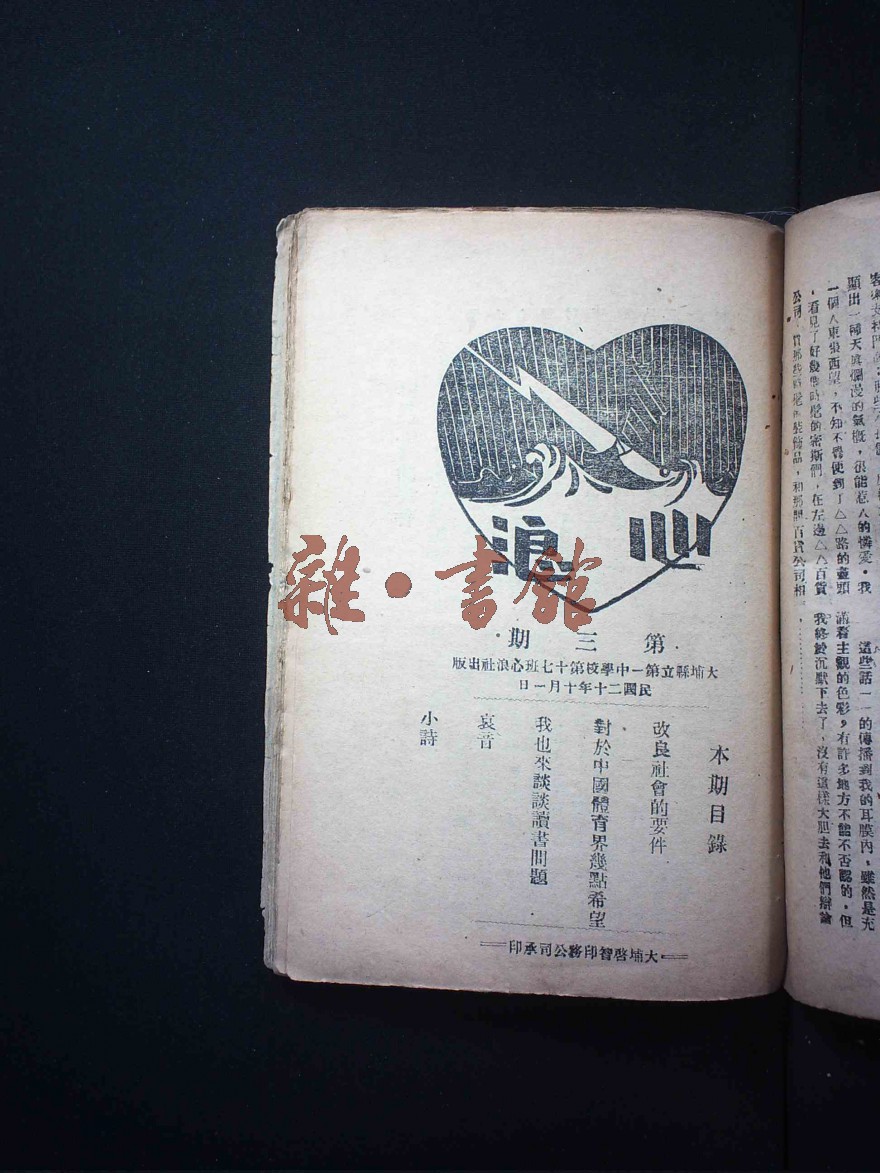 心浪
第三期
大埔縣立第一中學校第十七班心浪社出版
民國二十年十月一日
本期目錄
改良社會的要件
對於中國體育界幾點希望
我也來談談讀書問題
哀音
小詩
大埔啓智印務公司承印
雜·書館
顯出一種天眞爛漫的氣概，很能惹人的憐愛。我
一個人東張西望，不知不覺便到了△△路的盡頭
，看見了好幾個時髦的密斯們，在左邊△△百貨
這些話一一的傳播到我的耳膜內，雖然是充
滿着主觀的色彩，有許多地方不能不否認的，但
我終於沉默下去了，沒有這樣大胆去和他們辯論